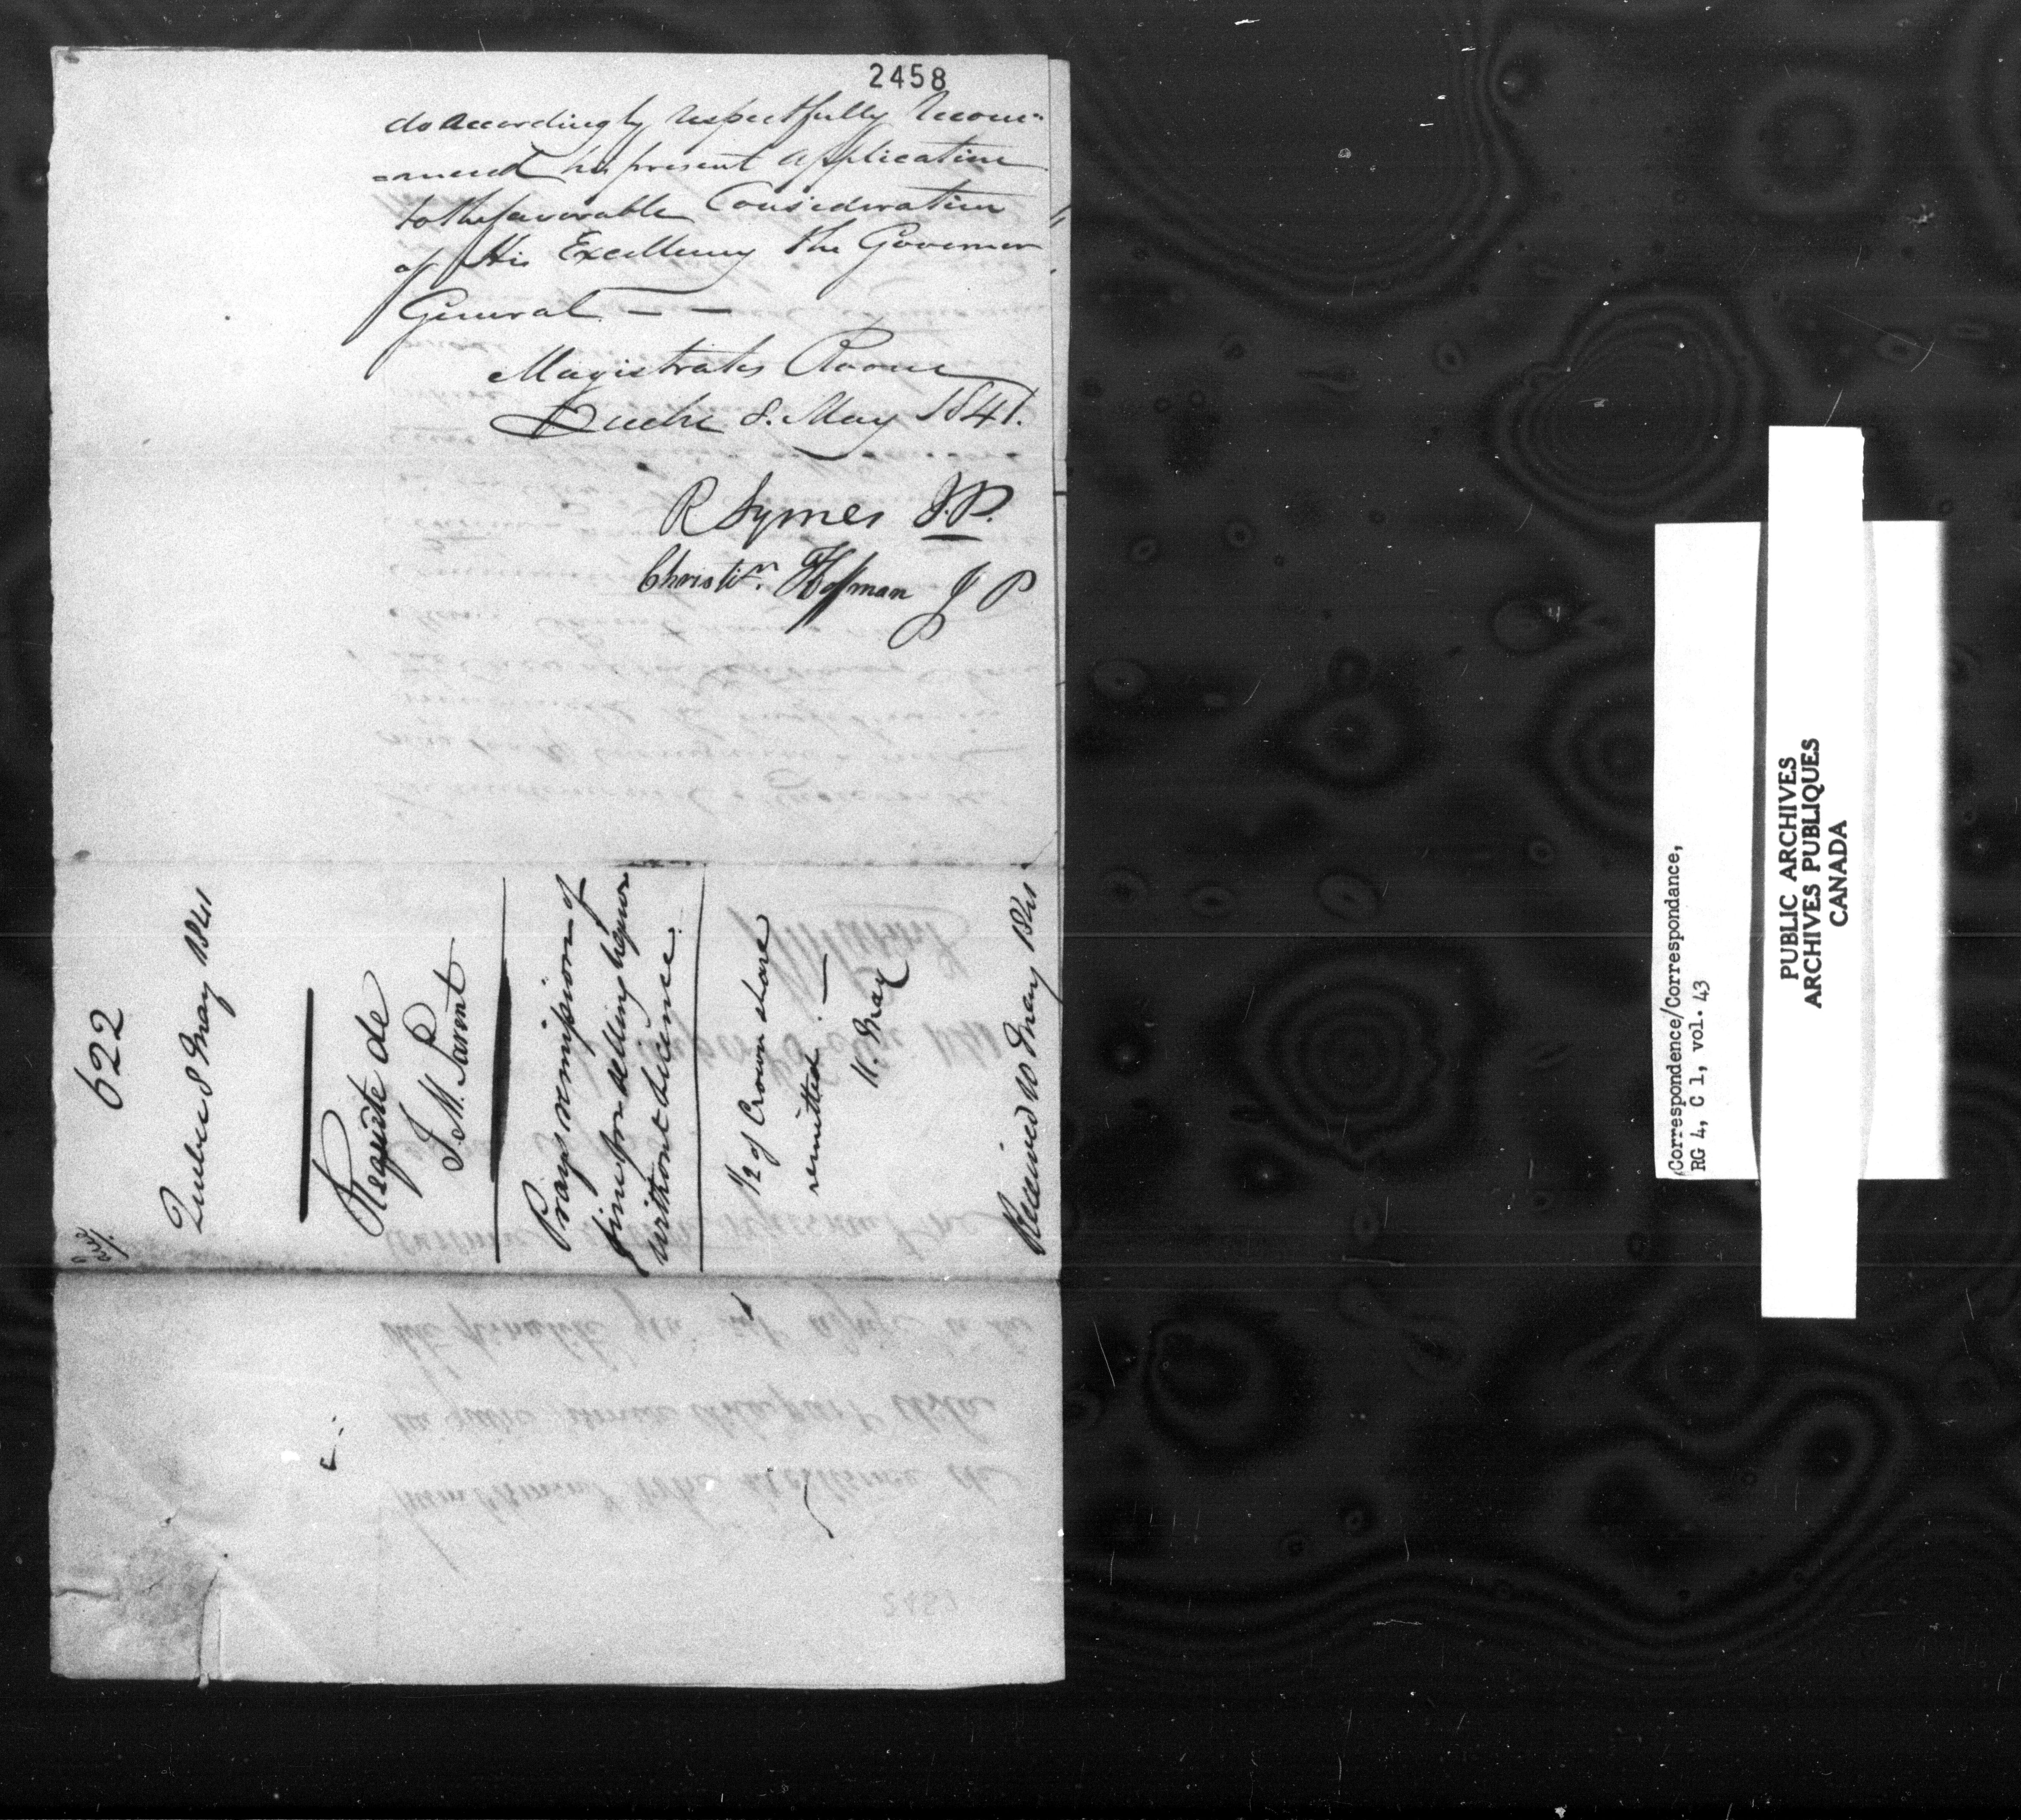 2458
do accordingly respectfully recom-
-mend his present application
to the favorable Consideration
of His Excellency the Governor
General — —
Magistrates Room
Quebec 8. May 1841.
R Symes J.P.
Christn. Hoffman J P
622
Quebec 8 May 1841
Requête de
J. M. P
Parent
Prays remission of
fine for selling liquor
without licence.
1/2 of Crown share
remitted. —
11. May
Received 10 May 1841
Correspondence/Correspondance,
RG 4, C 1, vol. 43
PUBLIC ARCHIVES
ARCHIVES PUBLIQUES
CANADA